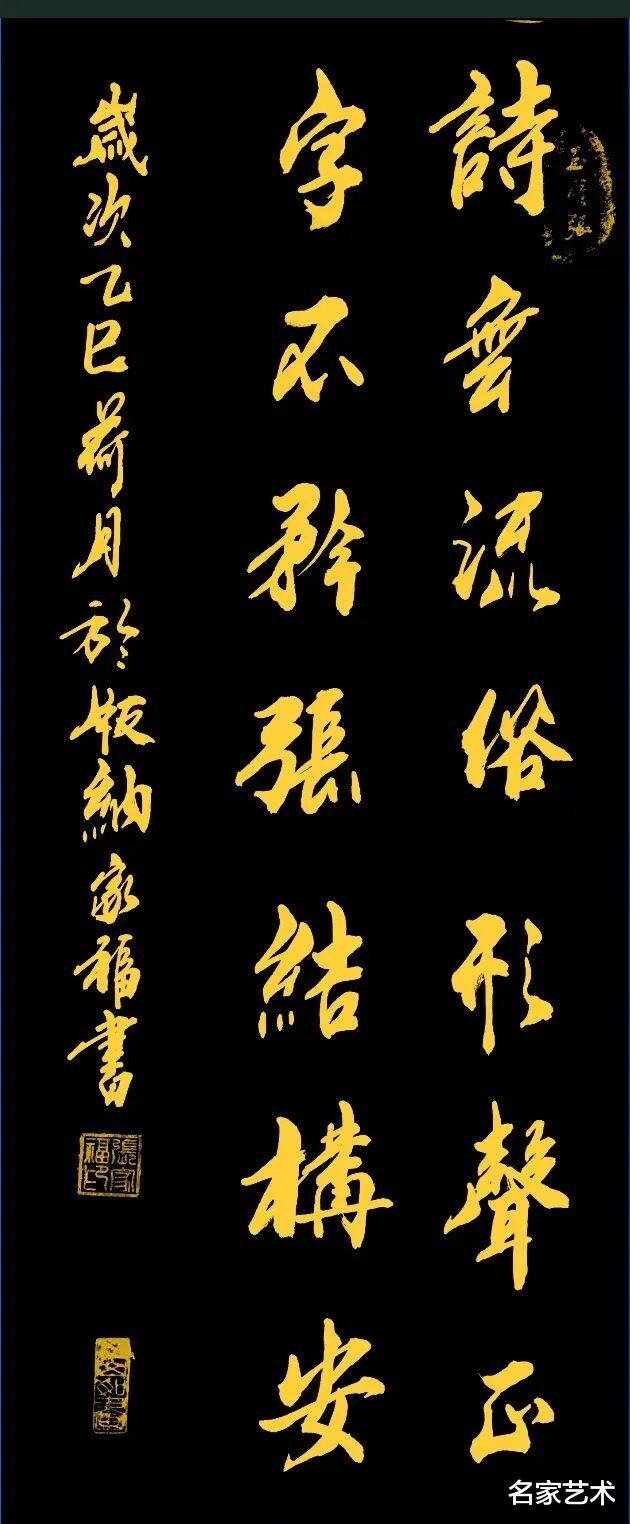 詩無流俗形聲正
字不矜張結構安
歲次乙巳荷月於
納家福書
張家福印
名家艺术